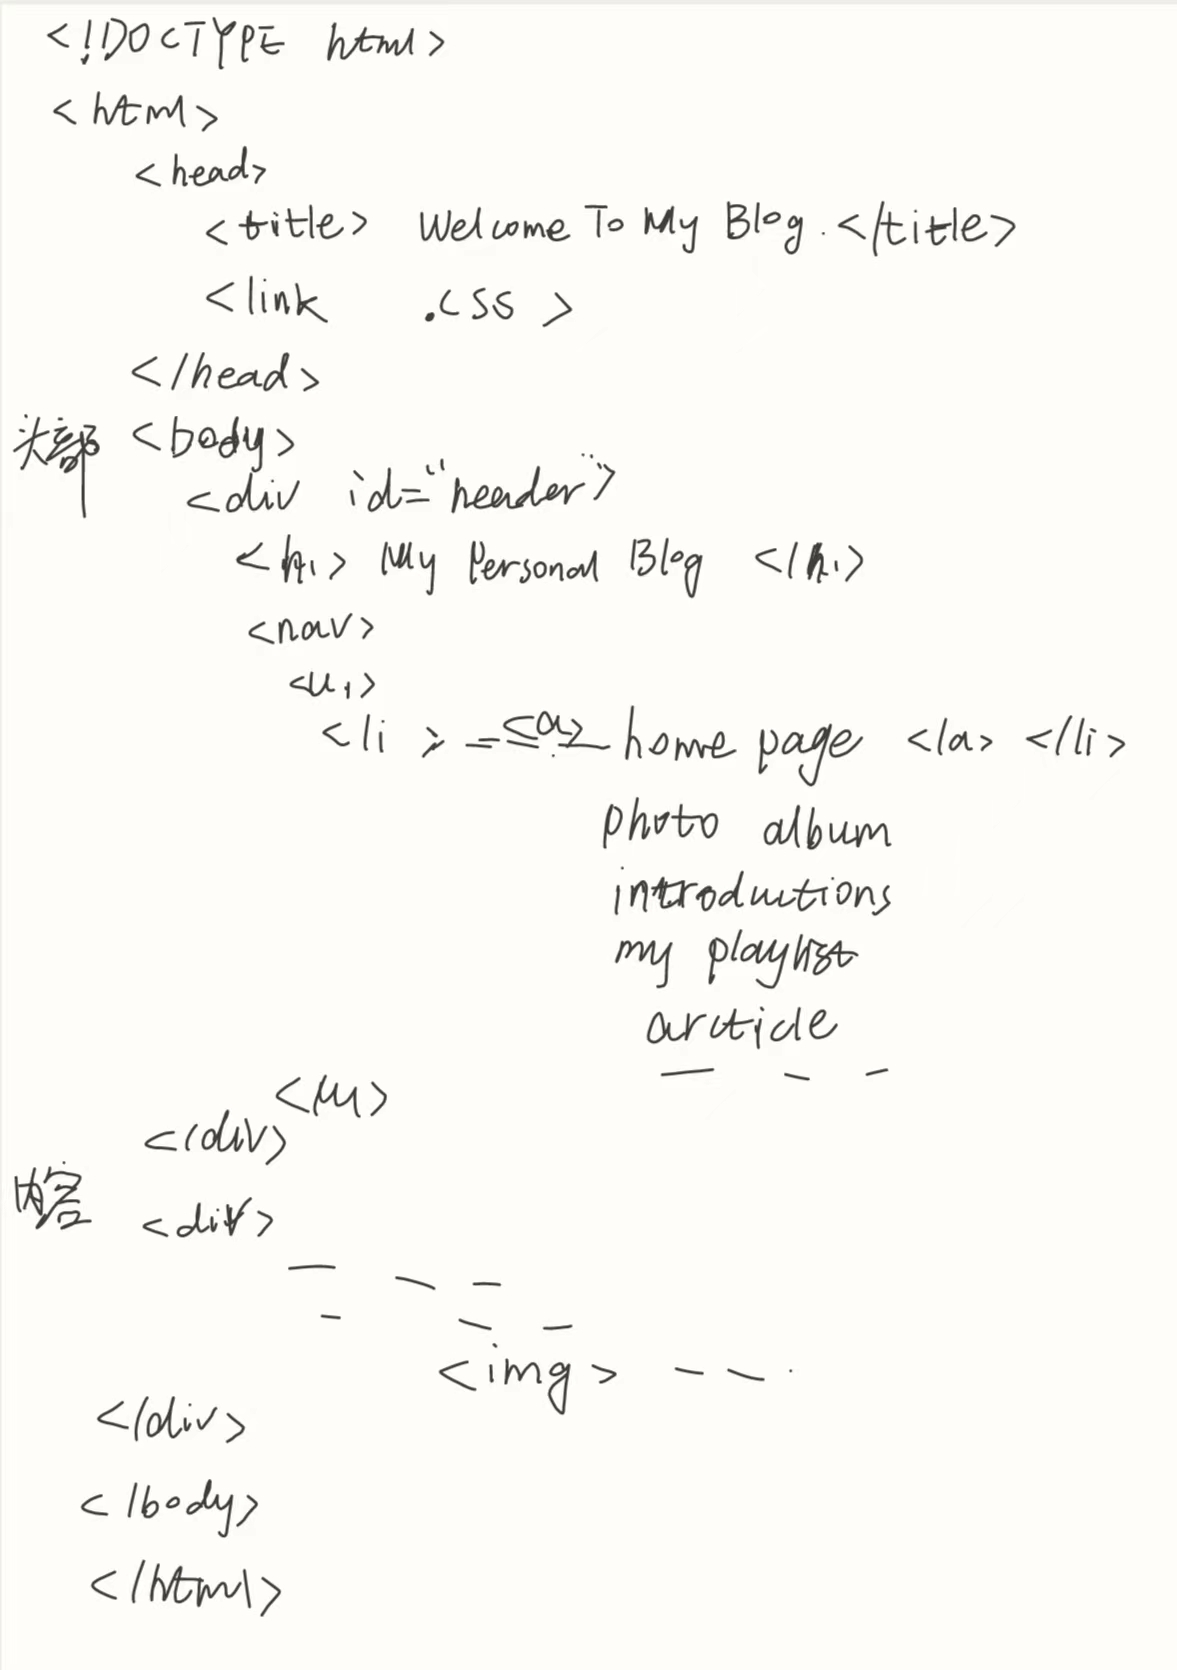 <!DOCTYPE html>
<html>
<head>
<title> Welcome To My Blog. </title>
<link .css >
</head>
头部 <body>
<div id="header">
<h1> My Personal Blog </h1>
<nav>
<ul>
<li> <a> home page </a> </li>
photo album
introductions
my playlist
arcticle
</ul>
</div>
内容 <div>
<img>
</div>
</body>
</html>